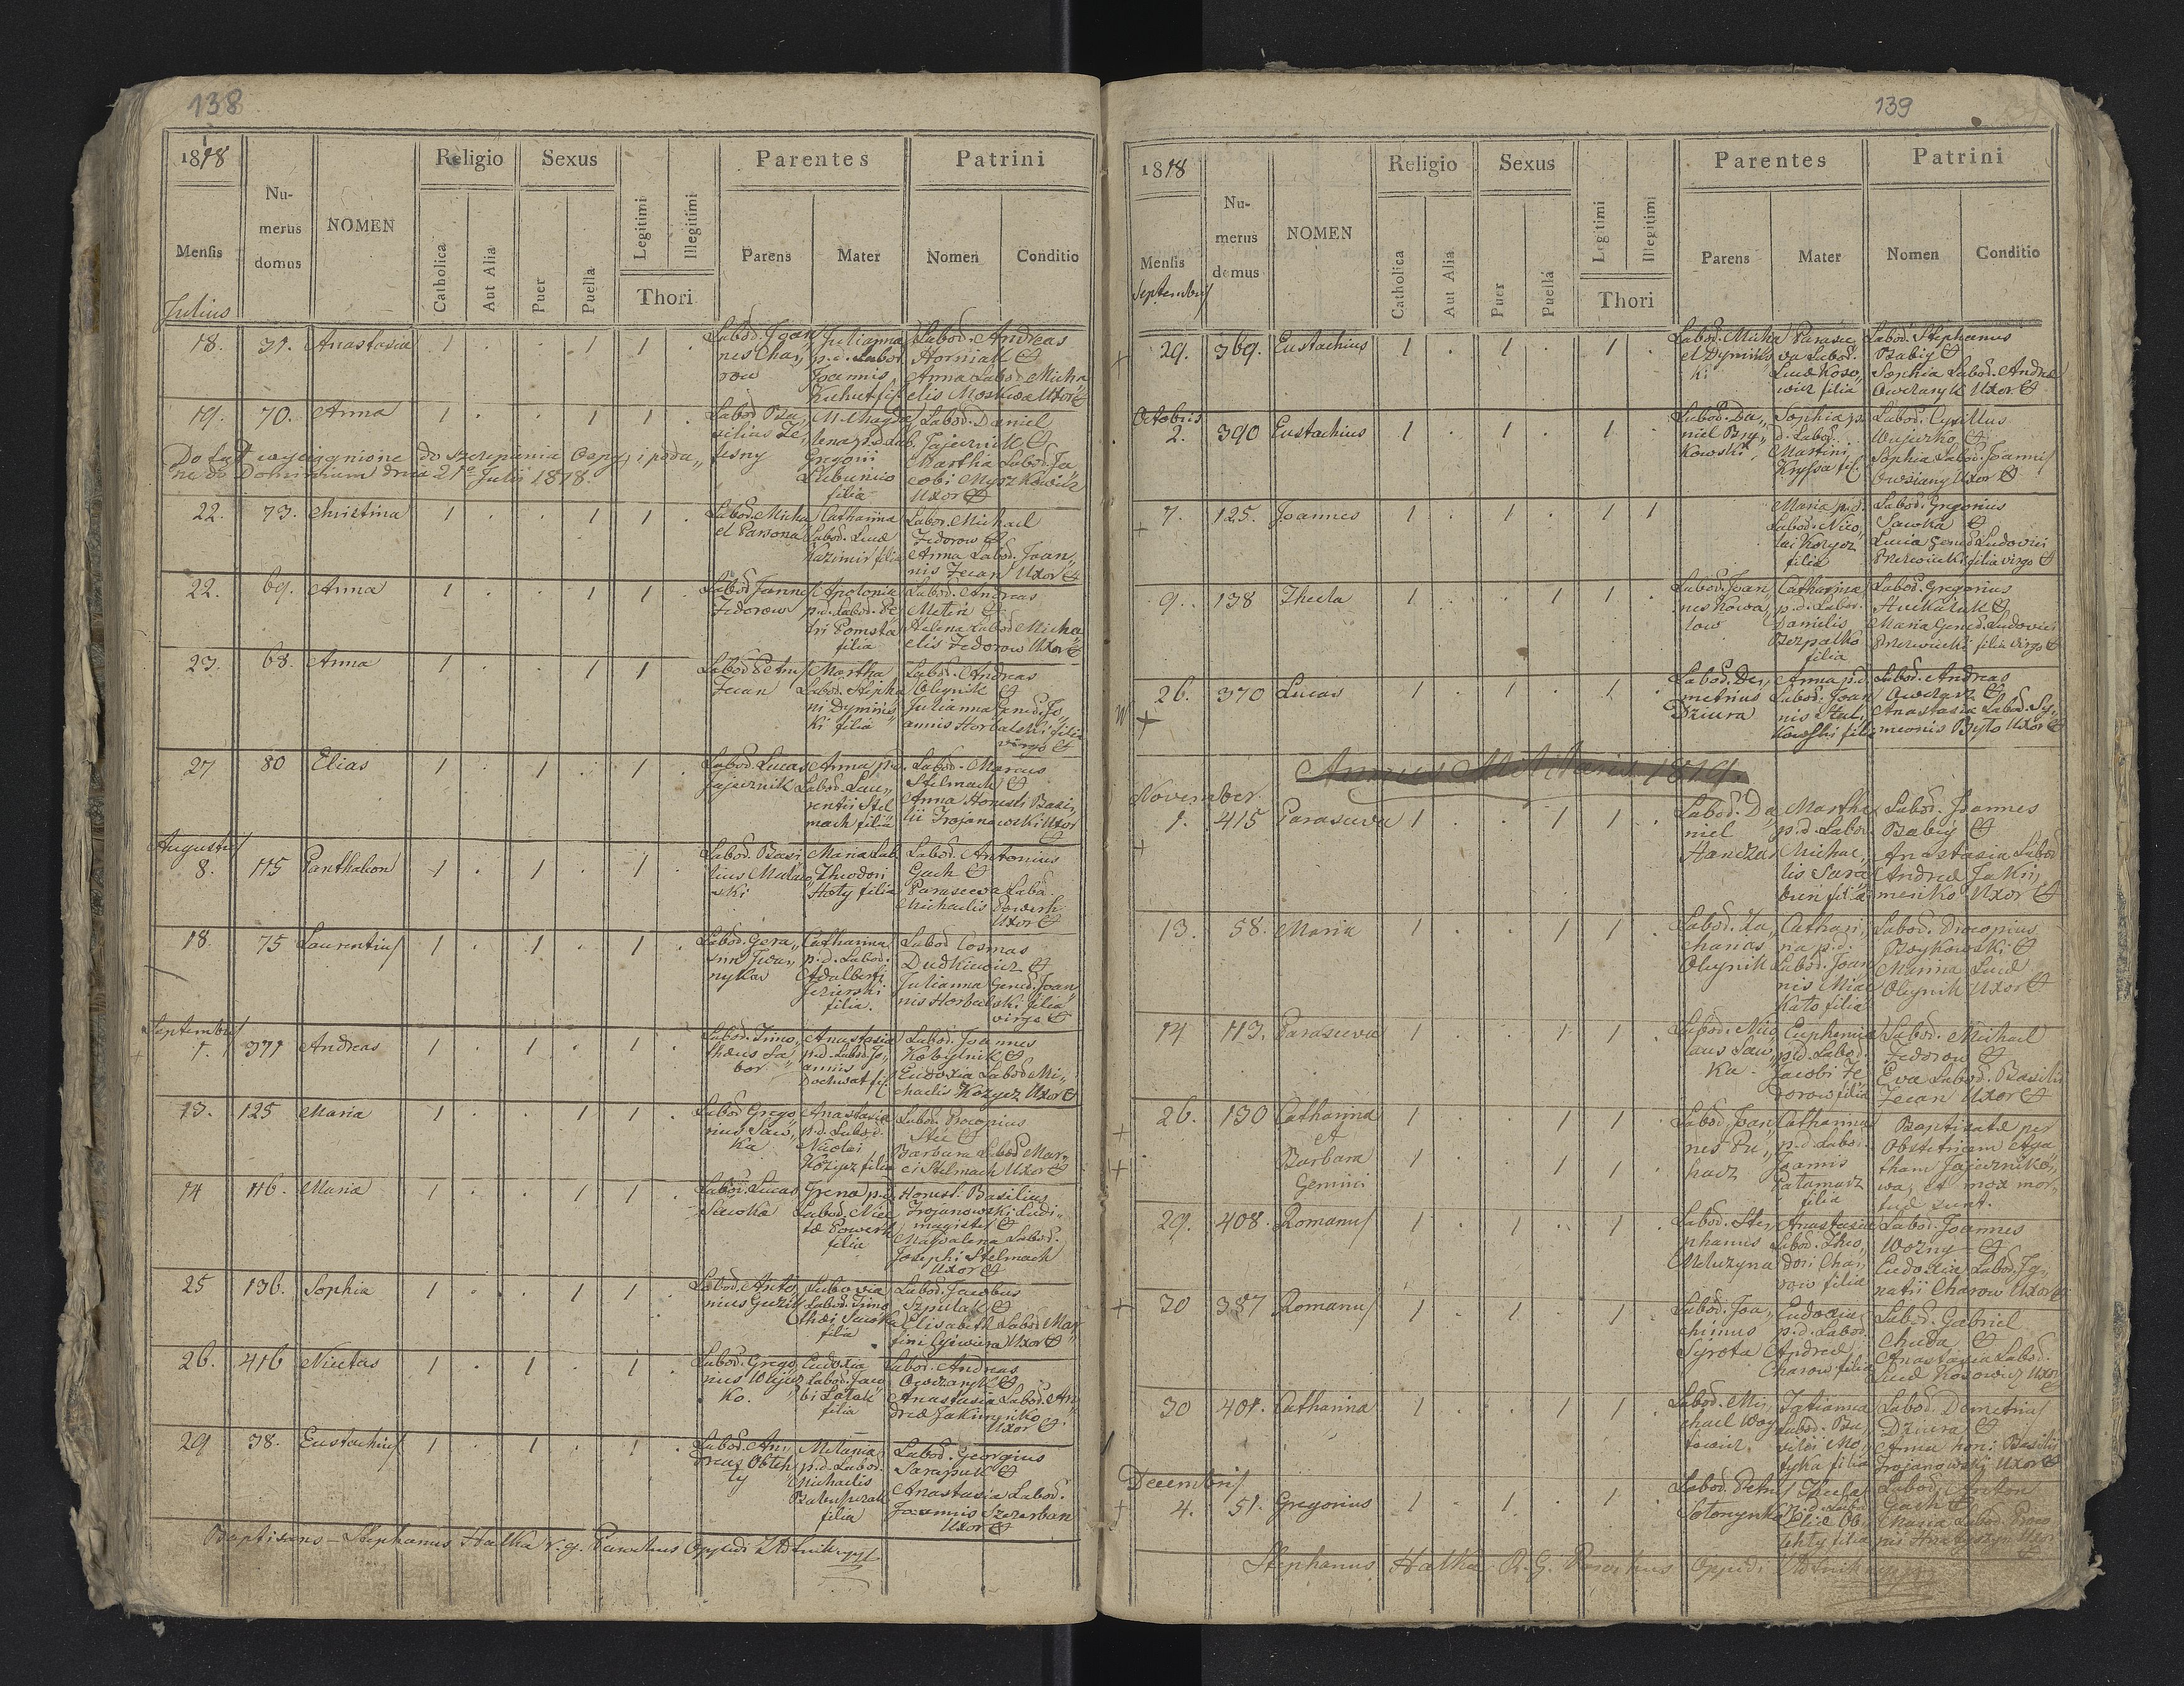 138
1818
Mensis
Julius
Nu-
merus
domus
NOMEN
Religio
Catholica
Aut Alia
Sexus
Puer
Puella
Legitimi
Illegitimi
Thori
Parentes
Parens
Mater
Patrini
Nomen
Conditio
18. 31. Anastasia 1 . . 1 1 .
Labod. Joan„
nes Cha„
row
Julianna
p.d. Labor.
Joannis
filia
Labod. Andreas
Horniak
Anna Labod. Micha
elis Moskwa Uxor
19. 70. Anna 1 . . 1 1 .
Labod. Ba„
silius Ze„
lesny
M. Magda
lena p.d. Lab.
Gregorii
filia
Labod. Daniel
Jajecznik
Martha Labod. Ja
cobi Myszkowicz
Uxor
Do tąd wyciągnione do szczepienia Ospy i poda„
ne do Dominium dnia 21º Julii 1818.
22. 73. Christina 1 . . 1 1 .
Labod. Micha
el Parsona
Catharina
Labod. Lucæ
Kazimir filia
Labor. Michael
Fedorow
Anna Labod. Joan„
nis Fecan Uxor
22. 69. Anna 1 . . 1 1 .
Labod. Joannes
Fedorow
Apolonia
p.d. Labod. Pe
tri Pomsta
filia
Labod. Andreas
Helena Labod. Micha
elis Fedorow Uxor
23. 68. Anna 1 . . 1 1 .
Labod. Petrus
Fecan
Martha
Labod. Stepha
ni Dymins
ki filia
Labod. Andreas
Oleynik
Julianna Gened. Jo„
annis Horbalski filia
virgo
27 80 Elias 1 . 1 . 1 .
Labod. Lucas
Jajecznik
Anna p.d.
Labod. Lau„
rentii Stel
mach filia
Labod. Marcus
Stelmach
Anna Honesti Basi„
lii Trojanowski Uxor
Augustus
8. 115 Panthaleon 1 . 1 . 1 .
Labod. Basi
lius
ski
Maria Lab.
Theodori
Hoły filia
Labod. Antonius
Gach
Parascewa Labod.
Michaelis Powersk
Uxor
18. 75 Laurentius 1 . 1 . 1 .
Labod. Gera„
sim Iwa„
nykow
Catharina
p.d. Labod.
Adalberti
Jezierski
filia.
Labod Cosmas
Dudkiewicz
Julianna Gened. Joan
nis Horbalski filia
virgo
Septembris
1. 371 Andreas 1 . 1 . 1 .
Labod. Timo„
theus Sa„
bor
Anastasia
p.d. Labod. Jo„
annis
Dochwat fil.
Labod. Joannes
Kobylnik
Eudoxia Labod. Mi„
chaelis Kozycz Uxor
13. 125 Maria 1 . . 1 1 .
Labod Grego
rius Saw„
ka
Anastasia
p.d. Labod.
Nicolai
Kozycz filia
Labod. Procopius
Barbara Labod. Mar„
ci Stelmach Uxor
14 116. Maria 1 . . 1 1 .
Labod. Lucas
Sawka
Irena p.d.
Labod. Nice
tæ Powersk
filia
Honest. Basilius
Trojanowski Ludi„
magister
Magdalena Labod.
Josephi Stelmach
Uxor
25 136. Sophia 1 . . 1 1 .
Labod. Anto
nius
Labod. Timo
thei Sawka
filia
Labod. Jacobus
Szpulak
Elisabeth Labod. Mar
tini Uxor
26. 416 Nicetas 1 . 1 . 1 .
Labod. Grego
rius Wujcz
ko.
Eudoxia
Labod. Jaco
bi
filia
Labod. Andreas
Owczaryk
Anastasia Labod. An
dreæ Jakimenko
Uxor
29 38. Eustachius 1 . 1 . 1 .
Labod. An„
dreas
ty
Melania
p.d. Labod.
Michaelis
filia
Labod. Georgius
Sarapuk
Anastasia Labod.
Joannis Szczerban
Uxor
Baptisans – Stephanus Hatka r. g. Parochus Oppidi
139
1818
Mensis
Septembris
Nu-
merus
domus
NOMEN
Religio
Catholica
Aut Alia
Sexus
Puer
Puella
Legitimi
Illegitimi
Thori
Parentes
Parens
Mater
Patrini
Nomen
Conditio
29. 369. Eustachius 1 . 1 . 1 .
Labod. Micha
el Dymins
ki
Parasce„
va Labod.
Lucæ Koso„
wicz filia
Labod. Stephanus
Babiy
Sophia Labod. Andreæ
Owczaryk Uxor
Octobris
2. 390 Eustachius 1 . 1 . 1 .
Labod. Da„
niel Bry„
kowski
Sophia p.
d. Labod.
Martini
Kryssa fil.
Labod. Cyrillus
Wujczko
Sophia Labod. Joannis
Owsiany Uxor
7. 125. Joannes 1 . 1 . 1 1
Maria p.d.
Labod. Nico„
lai Kozycz
filia
Labod. Gregorius
Sawka
Lucia Gened. Ludovici
filia virgo
9. 138 Thecla 1 . . 1 1 .
Labod. Joan„
nes Kowa„
low
Catharina
p.d. Labor.
Danielis
Bezpalko
filia
Labod. Gregorius
Maria Gened. Ludovici
filia virgo
26. 370 Lucas 1 . 1 . 1 .
Labod. De„
metrius
Dziura
Anna p.d.
Labod. Joan
nis
filia
Labod. Andreas
Owczarz
Anastasia Labod. Sy„
meonis Uxor
Annus Militaris 1819.
November
1. 415 Parasceva 1 . . 1 1 .
Labod. Da
niel
Hanczar
Martha
p.d. Labor.
Michae„
lis
filia
Labod. Joannes
Babiy
Anastasia Labod
Andreæ Jakii„
menko Uxor
13. 58. Maria 1 . . 1 1 .
Labod. Za„
charias
Oleynik
Cathari„
na p.d.
Labod. Joan
nis
filia
Labod. Procopius
Brykowski
Marina Lucæ
Oleynik Uxor
14 113. Parasceva 1 . . 1 1 .
Labod. Nico
laus Saw„
ka.
Euphemia
p.d. Labod.
Jacobi Fe
dorow filia
Labod. Michael
Fedorow
Eva Labod. Basilii
Fecan Uxor
26. 130 Catharina 1 . . 1 1 .
et
Barbara 1 . . 1 1 .
Gemini
Labod. Joan„
nes Pu„
hacz
Catharina
p.d. Labod.
Joannis
Patamarz
filia
Baptizatæ per
Obstetricem Aga
tham Jajeczniko„
wa, et mox mor„
tuæ sunt.
29. 408. Romanus 1 . 1 . 1 .
Labod. Ste„
phanus
Meluzyna
Anastasia
Labod. Theo„
dori Cha„
row filia
Labod. Joannes
Wozny
Eudoxia Labod. Ig„
natii Charow Uxor
30 387 Romanus 1 . 1 . 1 .
Labod. Joa„
chimus
Syrota
Eudoxia
p.d. Labod.
Andreæ
Charow filia
Labod. Gabriel
Chuda
Anastasia Labod.
Lucæ Kosowicz Uxor
30 401. Catharina 1 . . 1 1 .
Labod. Mi„
chael Woy
towicz.
Tatianna
Labod. Ba„
silii
filia
Labod. Demetrius
Dziura
Anna hon. Basilii
Trojanowski Uxor
Decembris
4. 51. Gregorius 1 . 1 . 1 .
Labod. Petrus
Sołonynka
Thecla
p.d. Labo
Eliæ Ob„
filia
Labod. Anton
Gach
Maria Labod. Proco
pii Uxor
Stephanus Hatka R. G. Parochus Oppidi